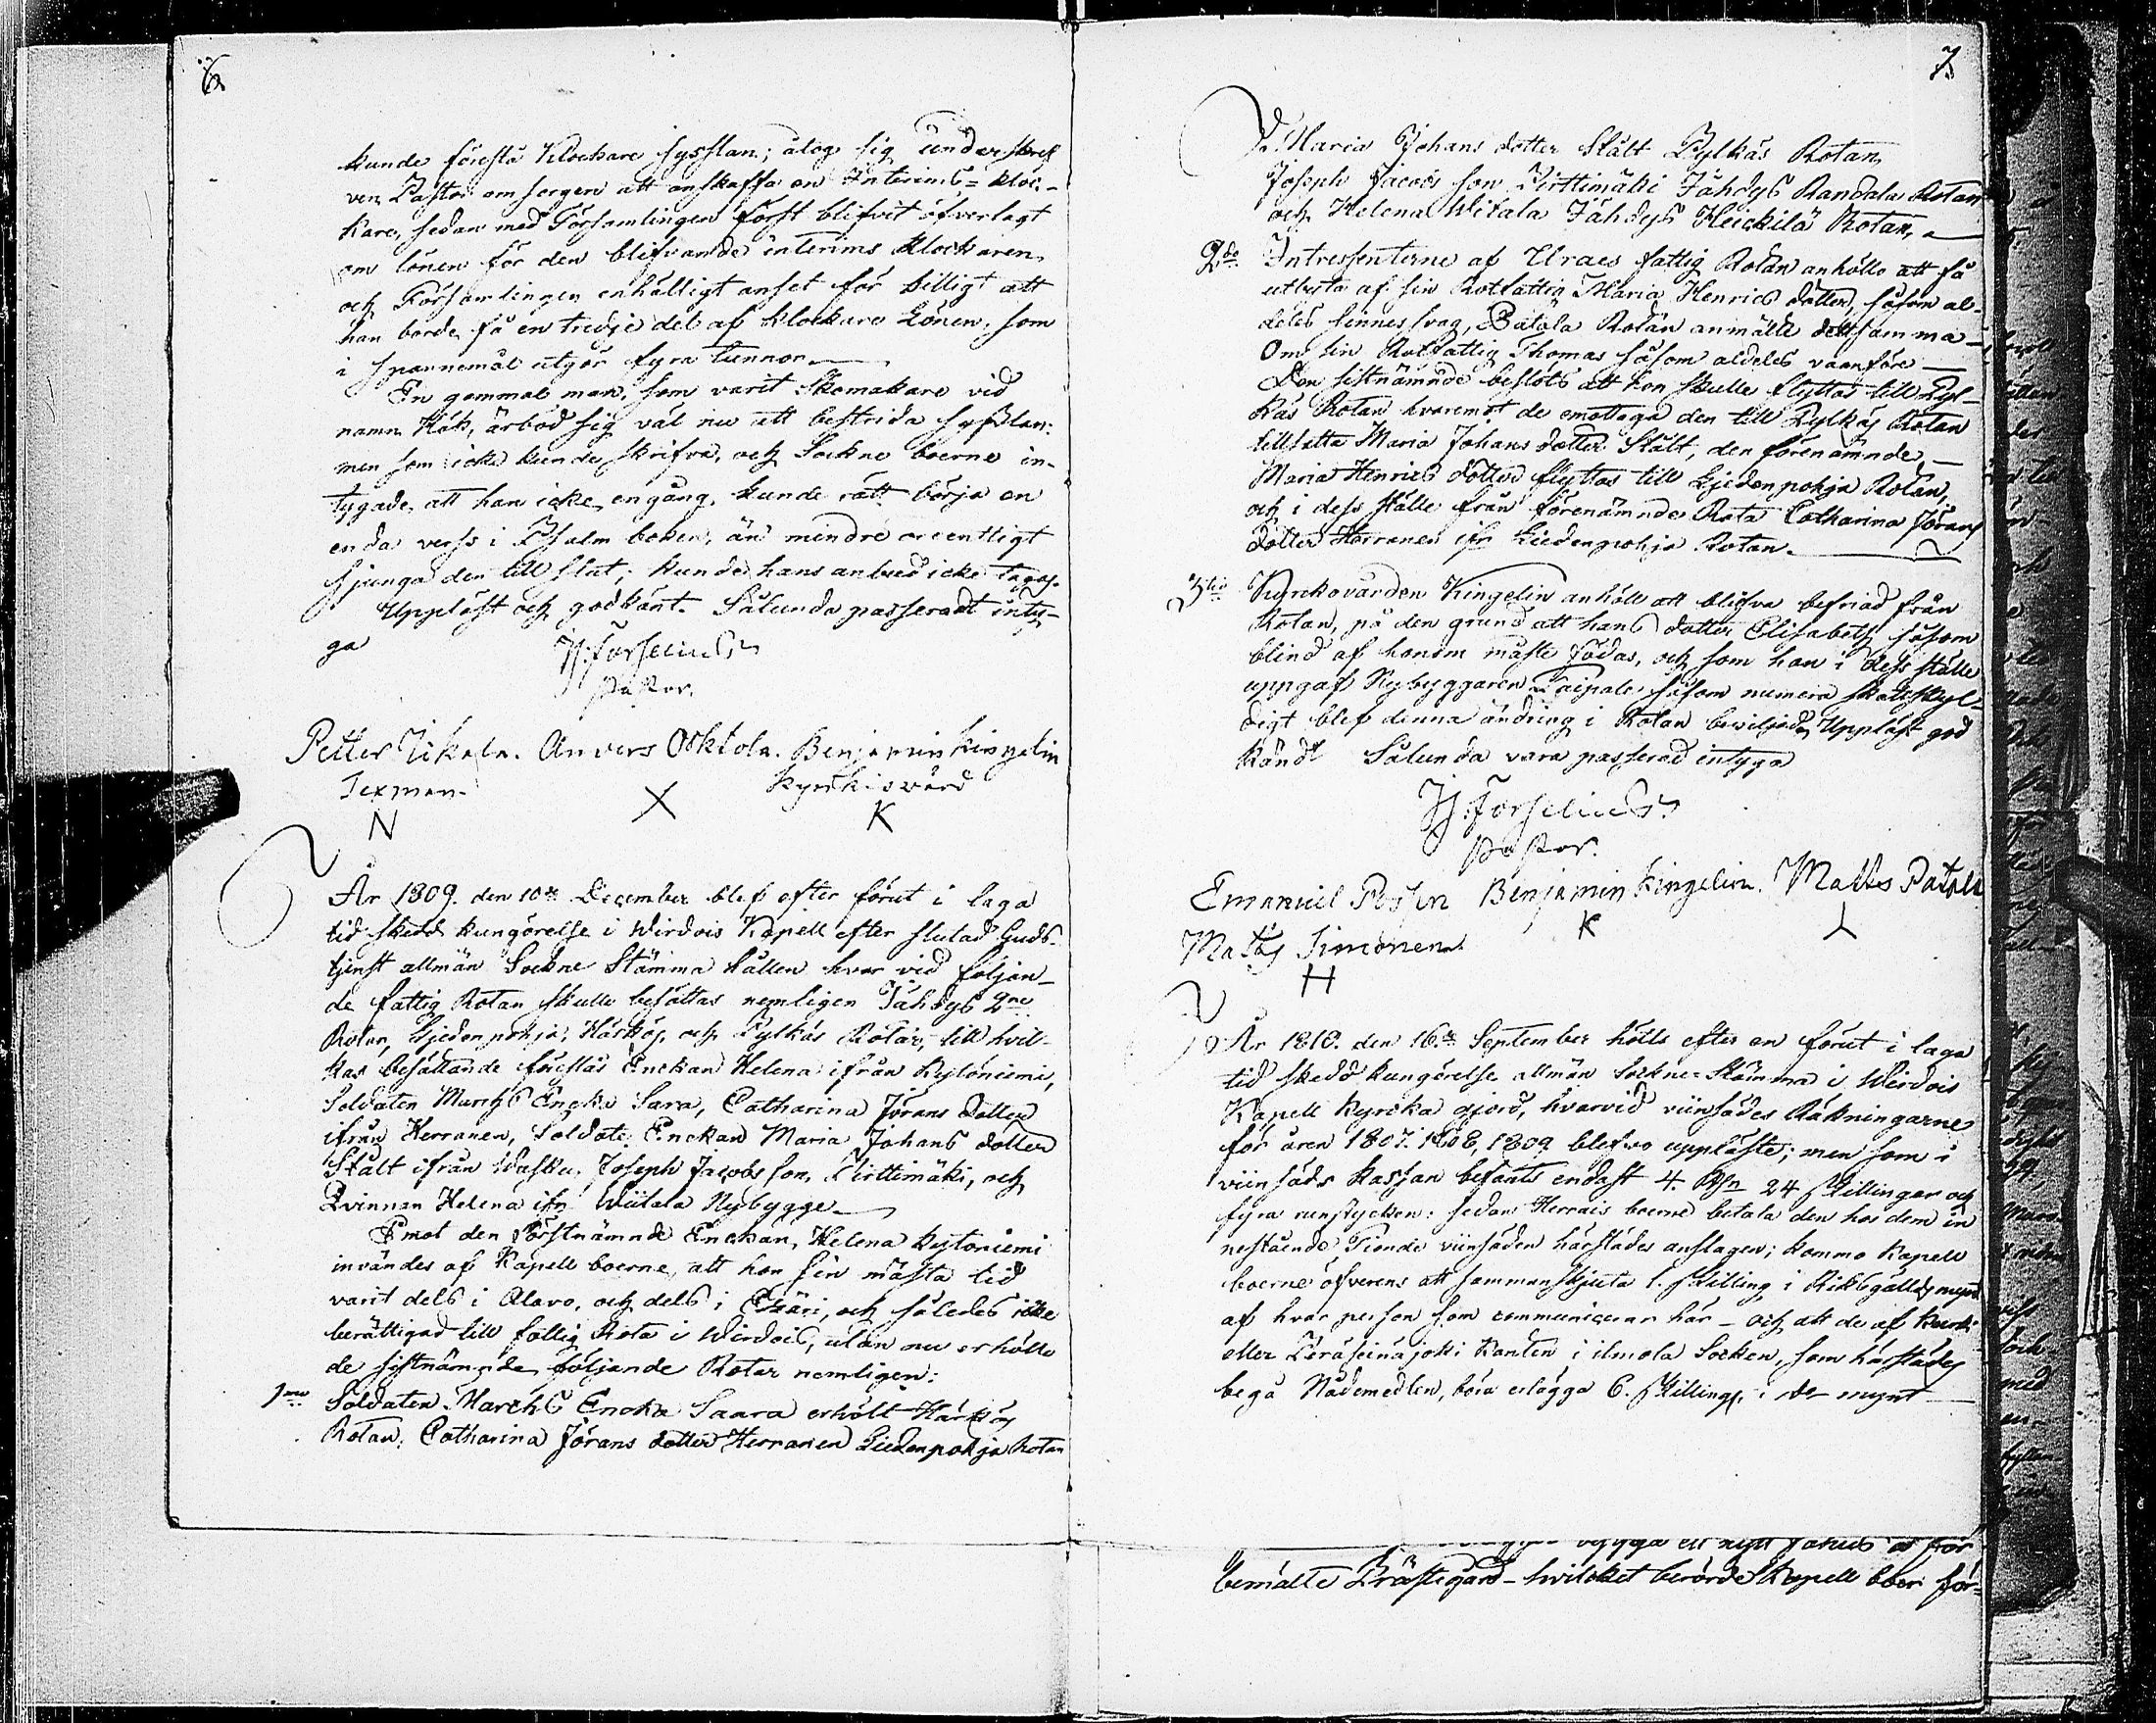 6.
kunde förestå Klockare sysslan; åtog sig underskref
ven Pastor omsorgen att anskaffa en Interims = kloc-
kare, sedan med Församlingen först blifvit öfverlagt
om lönen för den blifvande interims klockaren,
och Församlingen enhälligt anset för billigt att
han borde få en tredje del af klockare Lönen, som
i spannemål utgör fyra tunnor.
En gammal man, som varit Skomakare vid
namn Håk, ärböd sig väl nu att bestrida sysslan:
men som icke kunde skrifva, och Sockne boerne in-
tygade, att han icke en gång kunde rätt börja en
enda verss i Psalm boken, än mindre ordentligt
sjunga den till slut; kunde hans anbud icke tagas.
Uppläst och godkänt. Sålunda passeradt inty-
ga
JJ: Forselius
Pastor.
Petter Jikala. Anders Osktola. Benjamin Kingelin
Sexman. Kyrkiovärd
N X K
År 1809. den 10de December blef efter förut i laga
tid skedd kungörelse i Wirdois Kapell efter slutad Guds-
tjenst allmän Sockne Stämma hållen hvar vid följan-
de fattig Rotan skulle besättas nemligen Jähdys 2ne
Rotar, Liedenpohja, Härkös, och Pylkäs Rotar, till hvil-
kas besättande föreslås Enckan Helena ifrån Kytöniemi,
Soldaten Marchs Encka Sara, Catharina Jörans dotter
ifrån Herranen, Soldate Enckan Maria Johans dotter
Stält ifrån Wasku, Joseph Jacobs son, Pirttimäki, och
Qvinnan Helena ifr Wiitala Nybygge
Emot den Förstnämnde Enckan, Helena Kytöniemi
invändes af Kapell boerne, att hon sin mästa tid
varit dels i Alavo, och dels i Etzäri, och således icke
berättigad till fattig Rota i Wirdois, utan nu erhölle
de sistnämnde följande Rotar nemligen:
1mo Soldaten Marchs Encka Saara erhölt Härkös
Rotan, Catharina Jörans dotter Herranen Liedenpohja Rotan
7.
Maria Johans dotter Stält Pylkäs Rotan,
Joseph Jacobs son Pirttimäki Jähdys Randala Rotan
och Helena Witala Jähdys Heickilä Rotan,
2do Intressenterne af Uraes fattig Rotan anhöllo att få
utbyta af sin Rotfattig Maria Henrics dotter, såsom al-
deles sinnessvag, Patala Rotan anmälte dettsamma
Om sin Rotfattig Thomas såsom aldeles vanföre
Den sistnämnde beslöts att hon skulle flyttas till Pyl-
käs Rotan hvaremot de emottaga den till Pylkäs Rotan
tillsatta Maria Johans dotter Stält, den förenämnde,
Maria Henrics dotter flyttas till Liedenpohja Rotan,
och i dess ställe från förenämnde Rota Catharina Jörans
dotter Herranen ifr Liedenpohja Rotan.
3tio Kyrkovärden Kingelin anhöll att blifva befriad från
Rotan, på den grund att hans dotter Elisabeth såsom
blind af honom måste födas, och som han i dess ställe
uppgaf Nybyggaren Taipale, såsom numera skattskyl-
digt blef denna ändring i Rotan beviljad, Uppläst god
kändt Sålunda vara passerad intyga
JJ: Forselius
Pastor.
Emanuel Benjamin Kingelin. Matts Patala
K
Matts Simonen.
H
År 1810. den 16de September hölls efter en förut i laga
tid skedd kungörelse allmän Sockne-Stämma i Wirdois
Kapell Kyrcka gjord, hvarvid viinsädes Räkningarne
för åren 1807. 1808, 1809. blefvo uppläste; men som i
viinsäds kassan befants endast 4. Rdr 24 skillingar och
fyra runstycken: sedan Herrais boerne betala den hos dem in
nestående Tionde viinsäden härstädes anslagen; kommo Kapell
boerne öfverens att sammanskjuta 1. skilling i Riksgälds mynt
af hvar person som communicerar här - och att de af
eller Peräseinäjoki kanten i ilmola Socken, som härstädes
begå Nådemedlen, böra erlägga 6. skilling, i do mynt
bygga ett nytt på för
bemälte Prästegård - hvilcket berörde Kapell boer för-